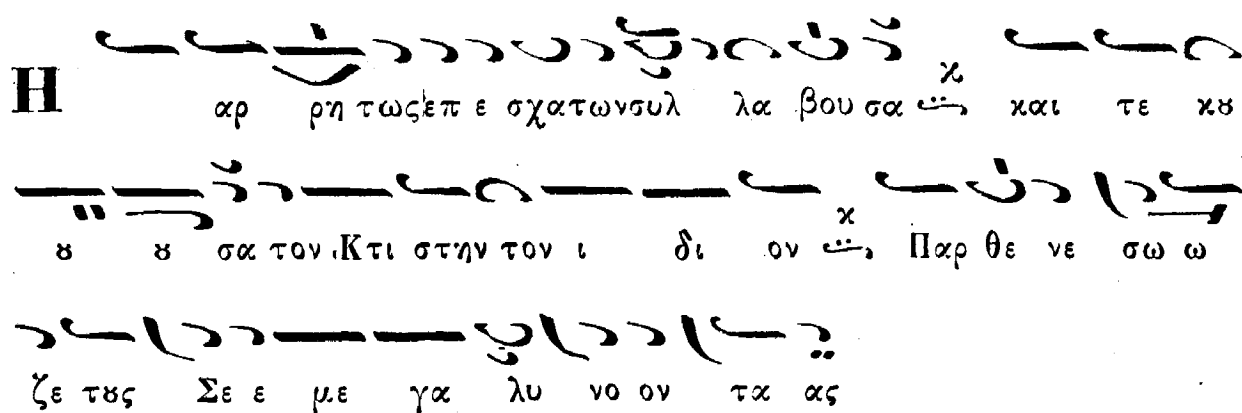 Η αρ ρη τως επ ε σχατων συλ λα βου σα και τε κȣ
ȣ ȣ σα τον Κτι στην τον ι δι ον Παρ θε νε σω ω
ζε τȣς Σε ε με γα λυ νο ον τα ας